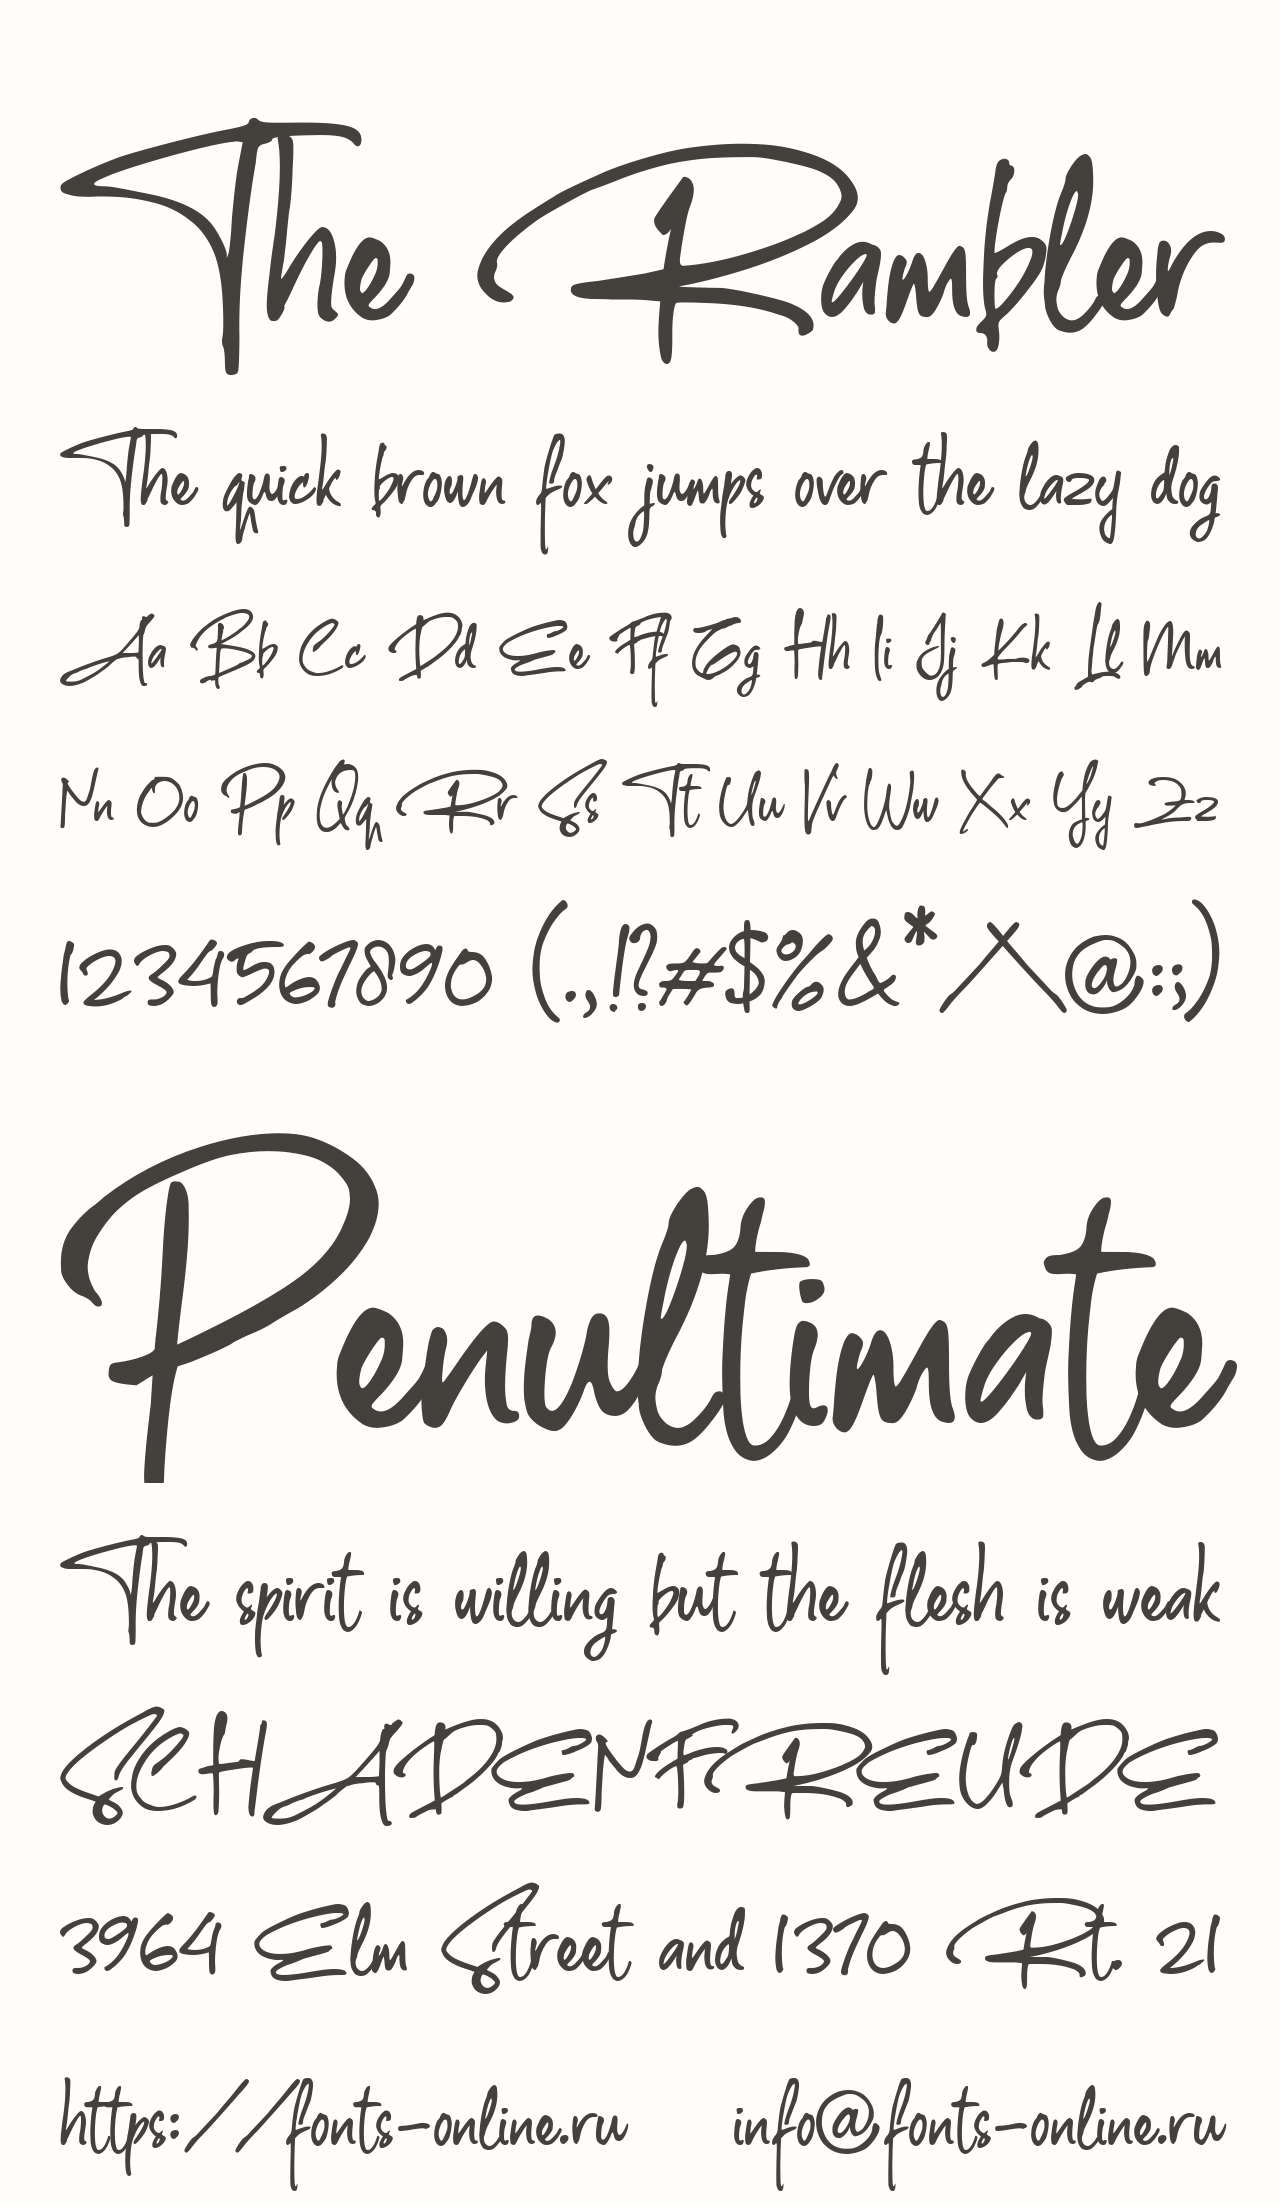 The Rambler
The quick brown fox jumps over the lazy dog
Aa Bb Cc Dd Ee Ff Gg Hh Ii Jj Kk Ll Mm
Nn Oo Pp Qq Rr Ss Tt Uu Vv Ww Xx Yy Zz
1234567890 (.,!?#$%&*/\@:;)
Penultimate
The spirit is willing but the flesh is weak
SCHADENFREUDE
3964 Elm Street and 1370 Rt. 21
https://fonts-online.ru info@fonts-online.ru